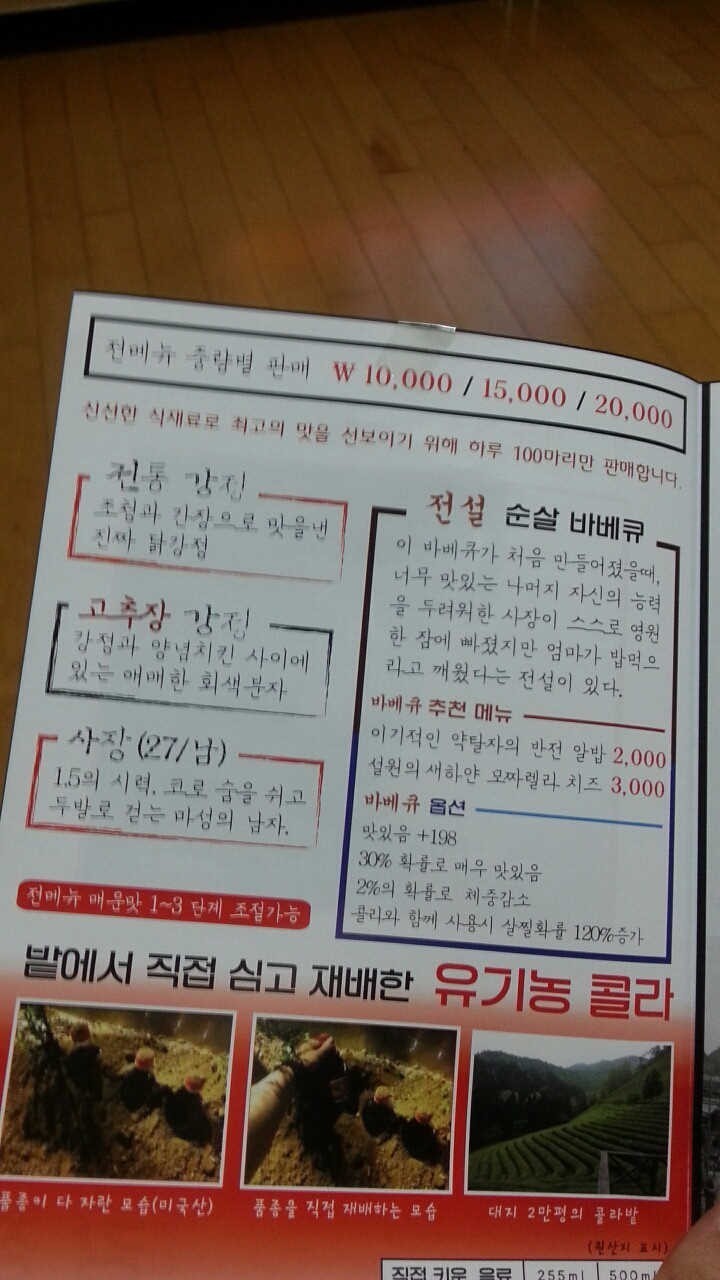 전메뉴 중량별 판매 ₩ 10,000 / 15,000 / 20,000
신선한 식재료로 최고의 맛을 선보이기 위해 하루 100마리만 판매합니다.
전통 강정
조청과 간장으로 맛을낸
진짜 닭강정
고추장 강정
강정과 양념치킨 사이에
있는 애매한 회색분자
사장 (27/남)
1.5의 시력. 코로 숨을 쉬고
두발로 걷는 마성의 남자.
전메뉴 매운맛 1~3 단계 조절가능
전설 순살 바베큐
이 바베큐가 처음 만들어졌을때,
너무 맛있는 나머지 자신의 능력
을 두려워한 사장이 스스로 영원
한 잠에 빠졌지만 엄마가 밥먹으
라고 깨웠다는 전설이 있다.
바베큐 추천 메뉴
이기적인 약탈자의 반전 알밥 2,000
설원의 새하얀 모짜렐라 치즈 3,000
바베큐 옵션
맛있음 +198
30% 확률로 매우 맛있음
2%의 확률로 체중감소
콜라와 함께 사용시 살찔확률 120%증가
밭에서 직접 심고 재배한 유기농 콜라
품종이 다 자란 모습(미국산)
품종을 직접 재배하는 모습
대지 2만평의 콜라밭
(원산지 표시)
직접 키운 음료 255ml 500ml